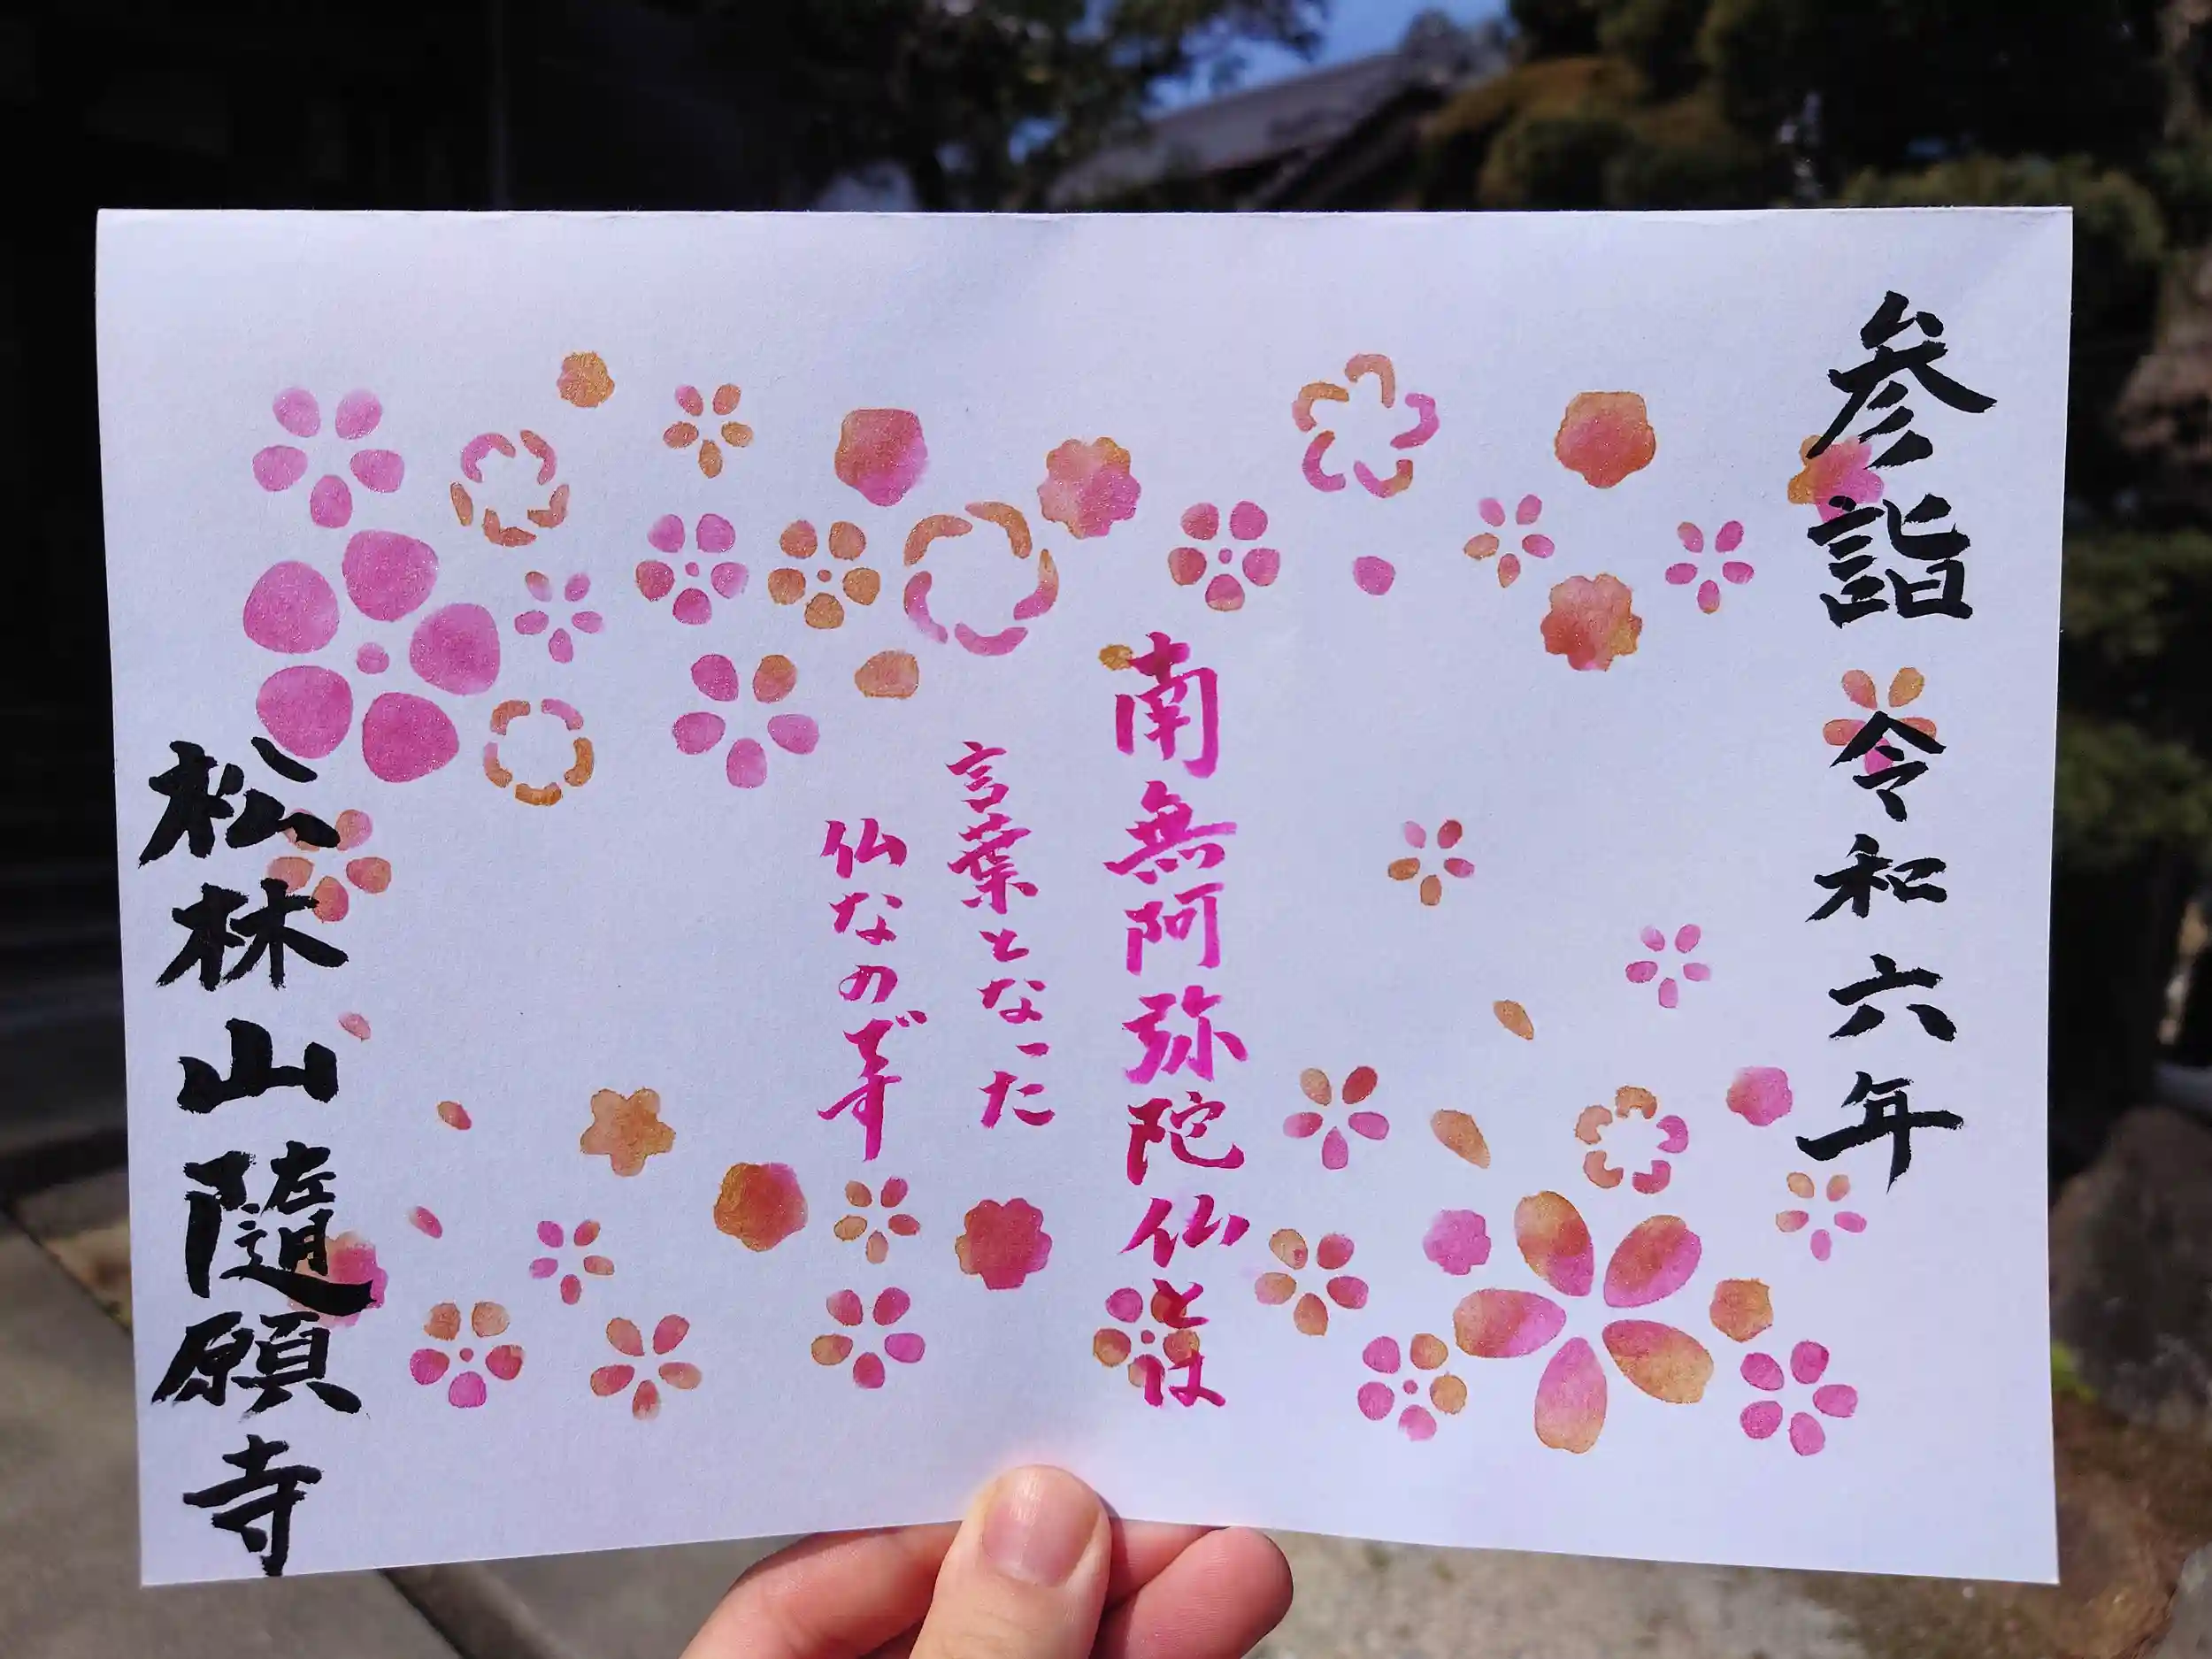 参詣 令和六年
南無阿弥陀仏とは
言葉となった
仏なのです
松林山隨願寺